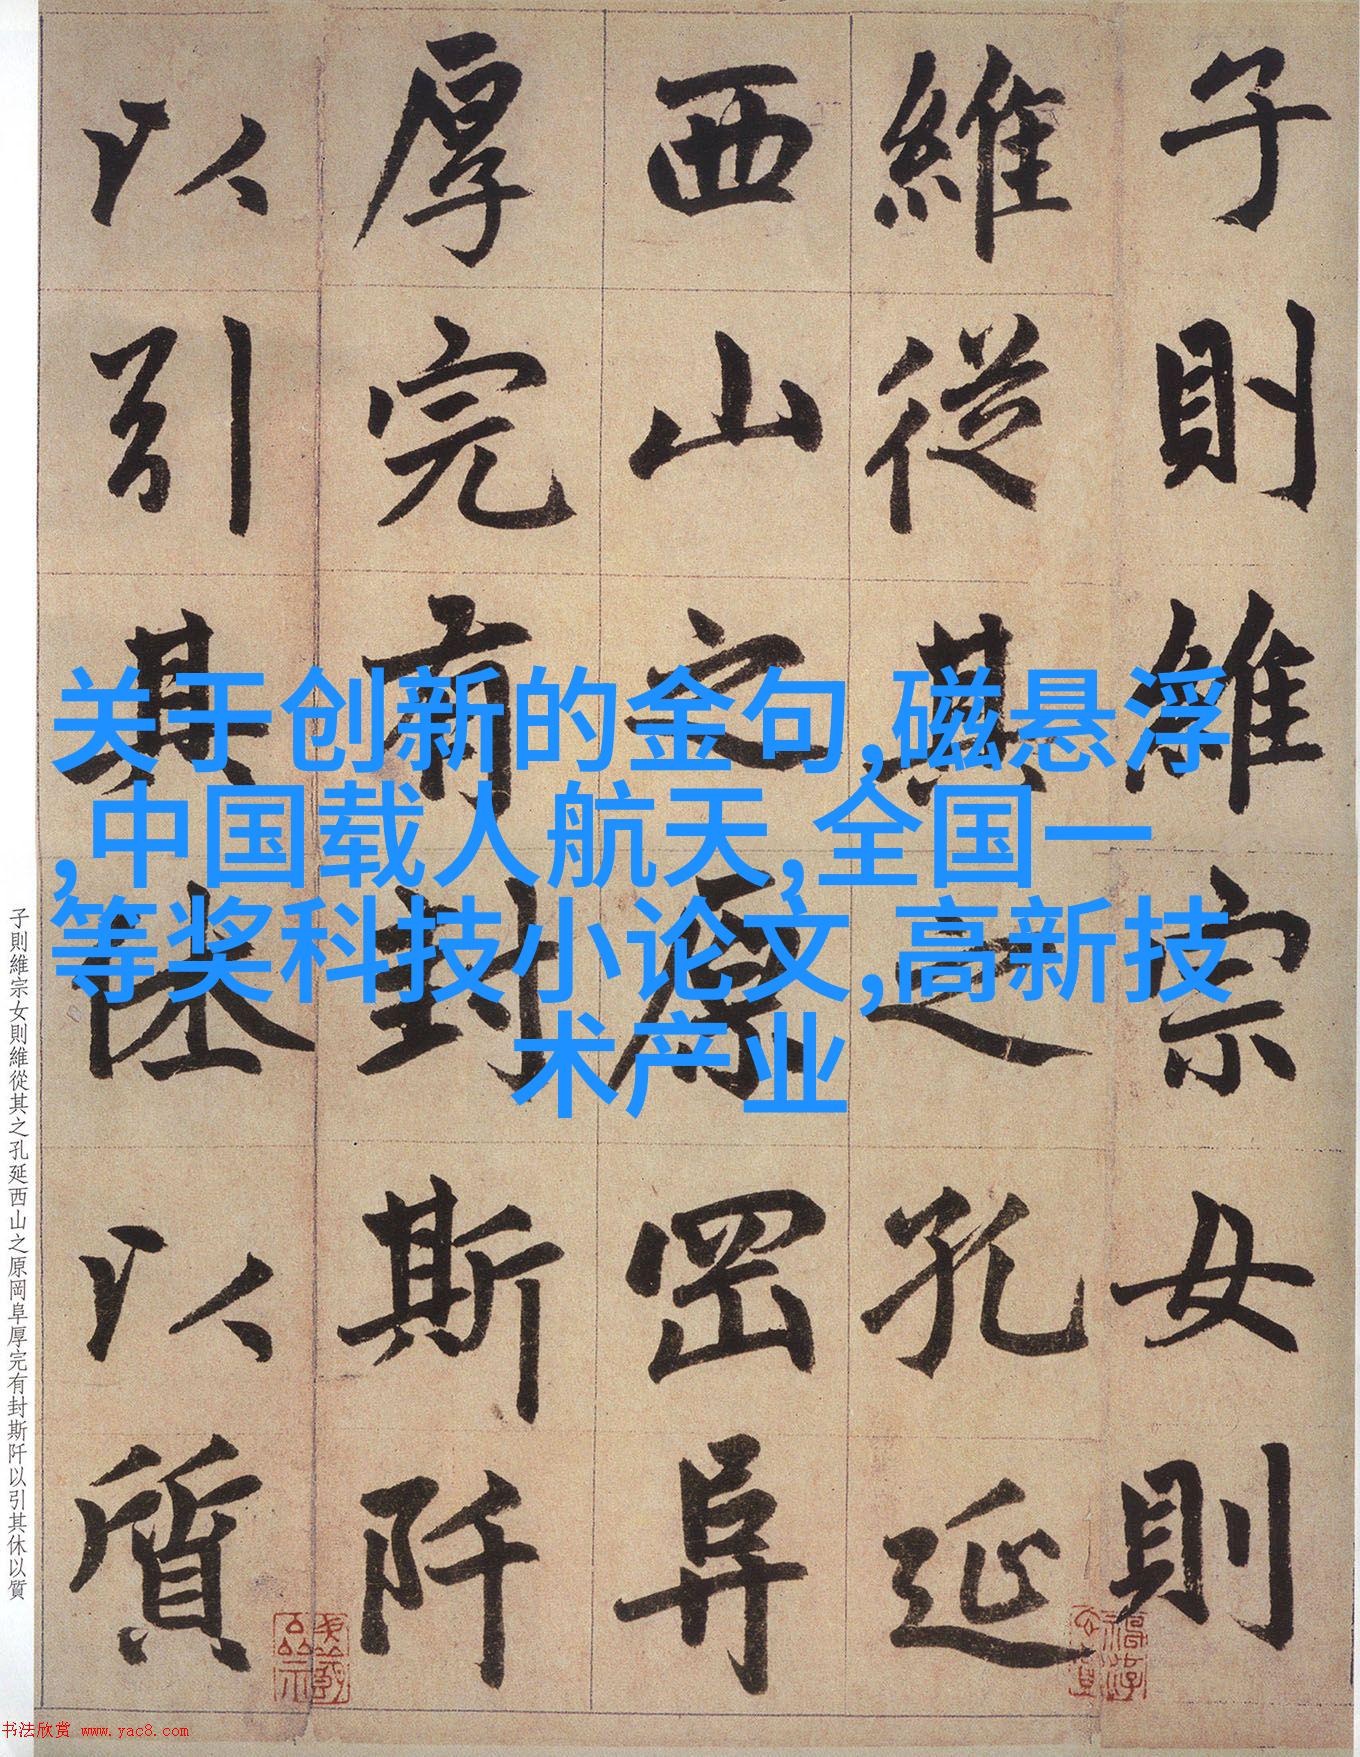 子則維宗女則
維從其之孔延
西山之原岡阜
厚完有封斯阡
以引其休以質
关于创新的金句,磁悬浮
,中国载人航天,全国一
等奖科技小论文,高新技
术产业
子則維宗女則維從其之孔延西山之原岡阜厚完有封斯阡以引其休以質
书法欣赏 www.yac8.com